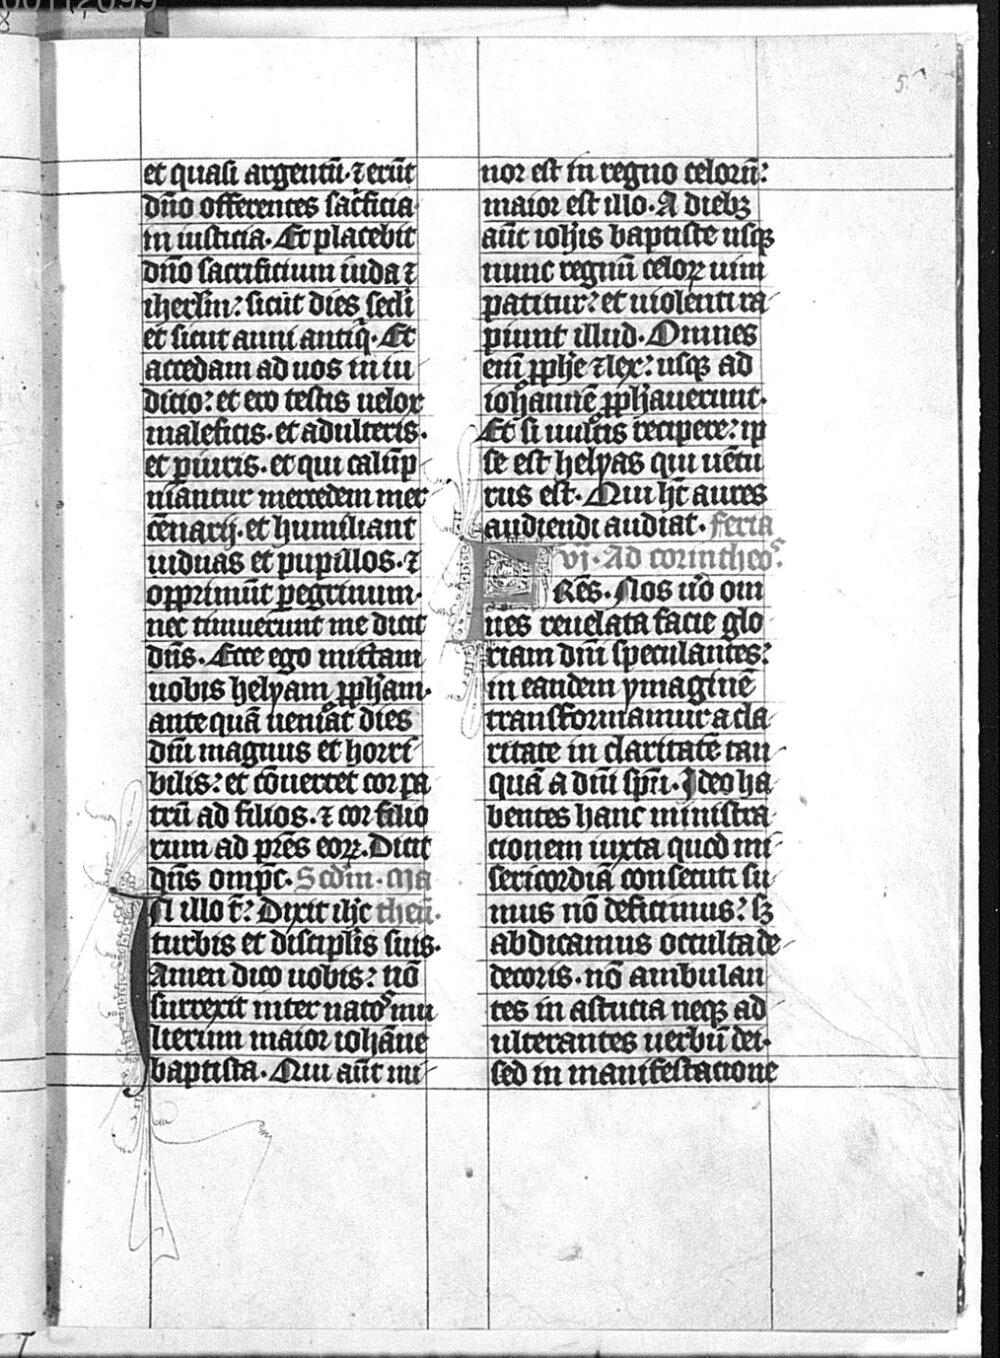 5
et quasi argentū · ⁊ erūt
dño offerentes sacͥficia
in iusticia · Et placebit
dño sacrificium iuda ⁊
iherlm̄ : sicut dies scl̄i
et sicut anni antiqͥ · Et
accedam ad uos in iu
dicio : et ero testis uelox
maleficis · et adulteris ·
et ꝑiuris · et qui calūp
niantur mercedem mer
cēnarij · et humiliant
uiduas et pupillos · ⁊
opprimūt ꝑegrinum ·
nec timuerunt me dicit
dñs · Ecce ego mittam
uobis helyam ꝓpħam ·
ante quā ueniat dies
dñi magnus et horri
bilis : et cōuertet cor pa
trū ad filios · ⁊ cor filio
rum ad pr̄es eoꝝ · Dicit
dñs omp̄c · Scdm̄ · Ma
IN illo t̄ : Dixit ihc̄ theū ·
turbis et discipl̄is suis ·
Amen dico uobis : nō
surrexit inter natoˢ mu
lierum maior iohāne
baptista · Qui aūt mi
nor est in regno celorū :
maior est illo · A diebꝫ
aūt ioħis baptiste usqꝫ
nunc regnū celoꝝ uim
patitur : et uiolenti ra
piunt illud · Omnes
enī ꝓpħe ⁊ lex : usqꝫ ad
iohannē ꝓpħauerunt ·
Et si uultis recipere : ip
se est helyas qui uētu
rus est · Qui h̄t aures
audiendi audiat · Feria
vj · Ad corintheoˢ ·
FRēs · Nos u̇o om
nes reuelata facie glo
riam dñi speculantes :
in eandem ymaginē
transformamur a cla
ritate in claritatē tan
quā a dñi sp̄u · Ideo ha
bentes hanc ministra
cionem iuxta quod mi
sericordiā consecuti su
mus nō deficimus : sꝫ
abdicamus occulta de
decoris · nō ambulan
tes in astucia neqꝫ ad
ulterantes uerbū dei ·
sed in manifestacione